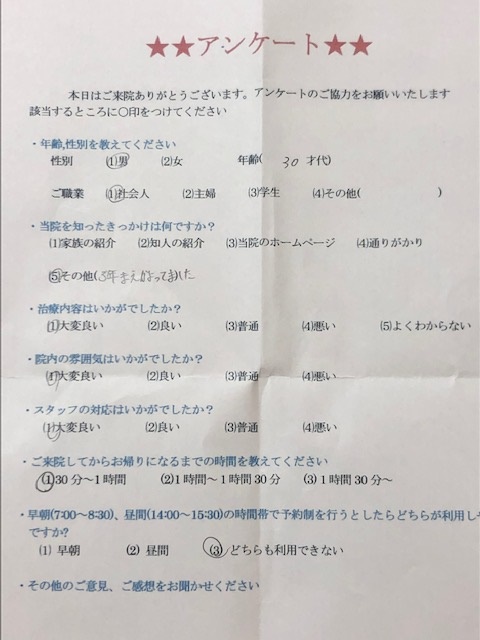 ★★アンケート★★
本日はご来院ありがとうございます。アンケートのご協力をお願いいたします
該当するところに○印をつけてください
・年齢,性別を教えてください
性別 (1)男 (2)女 年齢( 30 才代)
ご職業 (1)社会人 (2)主婦 (3)学生 (4)その他( )
・当院を知ったきっかけは何ですか?
(1)家族の紹介 (2)知人の紹介 (3)当院のホームページ (4)通りがかり
(5)その他(5年まえ通ってました
・治療内容はいかがでしたか?
(1)大変良い (2)良い (3)普通 (4)悪い (5)よくわからない
・院内の雰囲気はいかがでしたか?
(1)大変良い (2)良い (3)普通 (4)悪い
・スタッフの対応はいかがでしたか?
(1)大変良い (2)良い (3)普通 (4)悪い
・ご来院してからお帰りになるまでの時間を教えてください
(1)30分~1時間 (2)1時間~1時間30分 (3)1時間30分~
・早朝(7:00~8:30)、昼間(14:00~15:30)の時間帯で予約制を行うとしたらどちらが利用し
ですか?
(1) 早朝 (2) 昼間 (3)どちらも利用できない
・その他のご意見、ご感想をお聞かせください